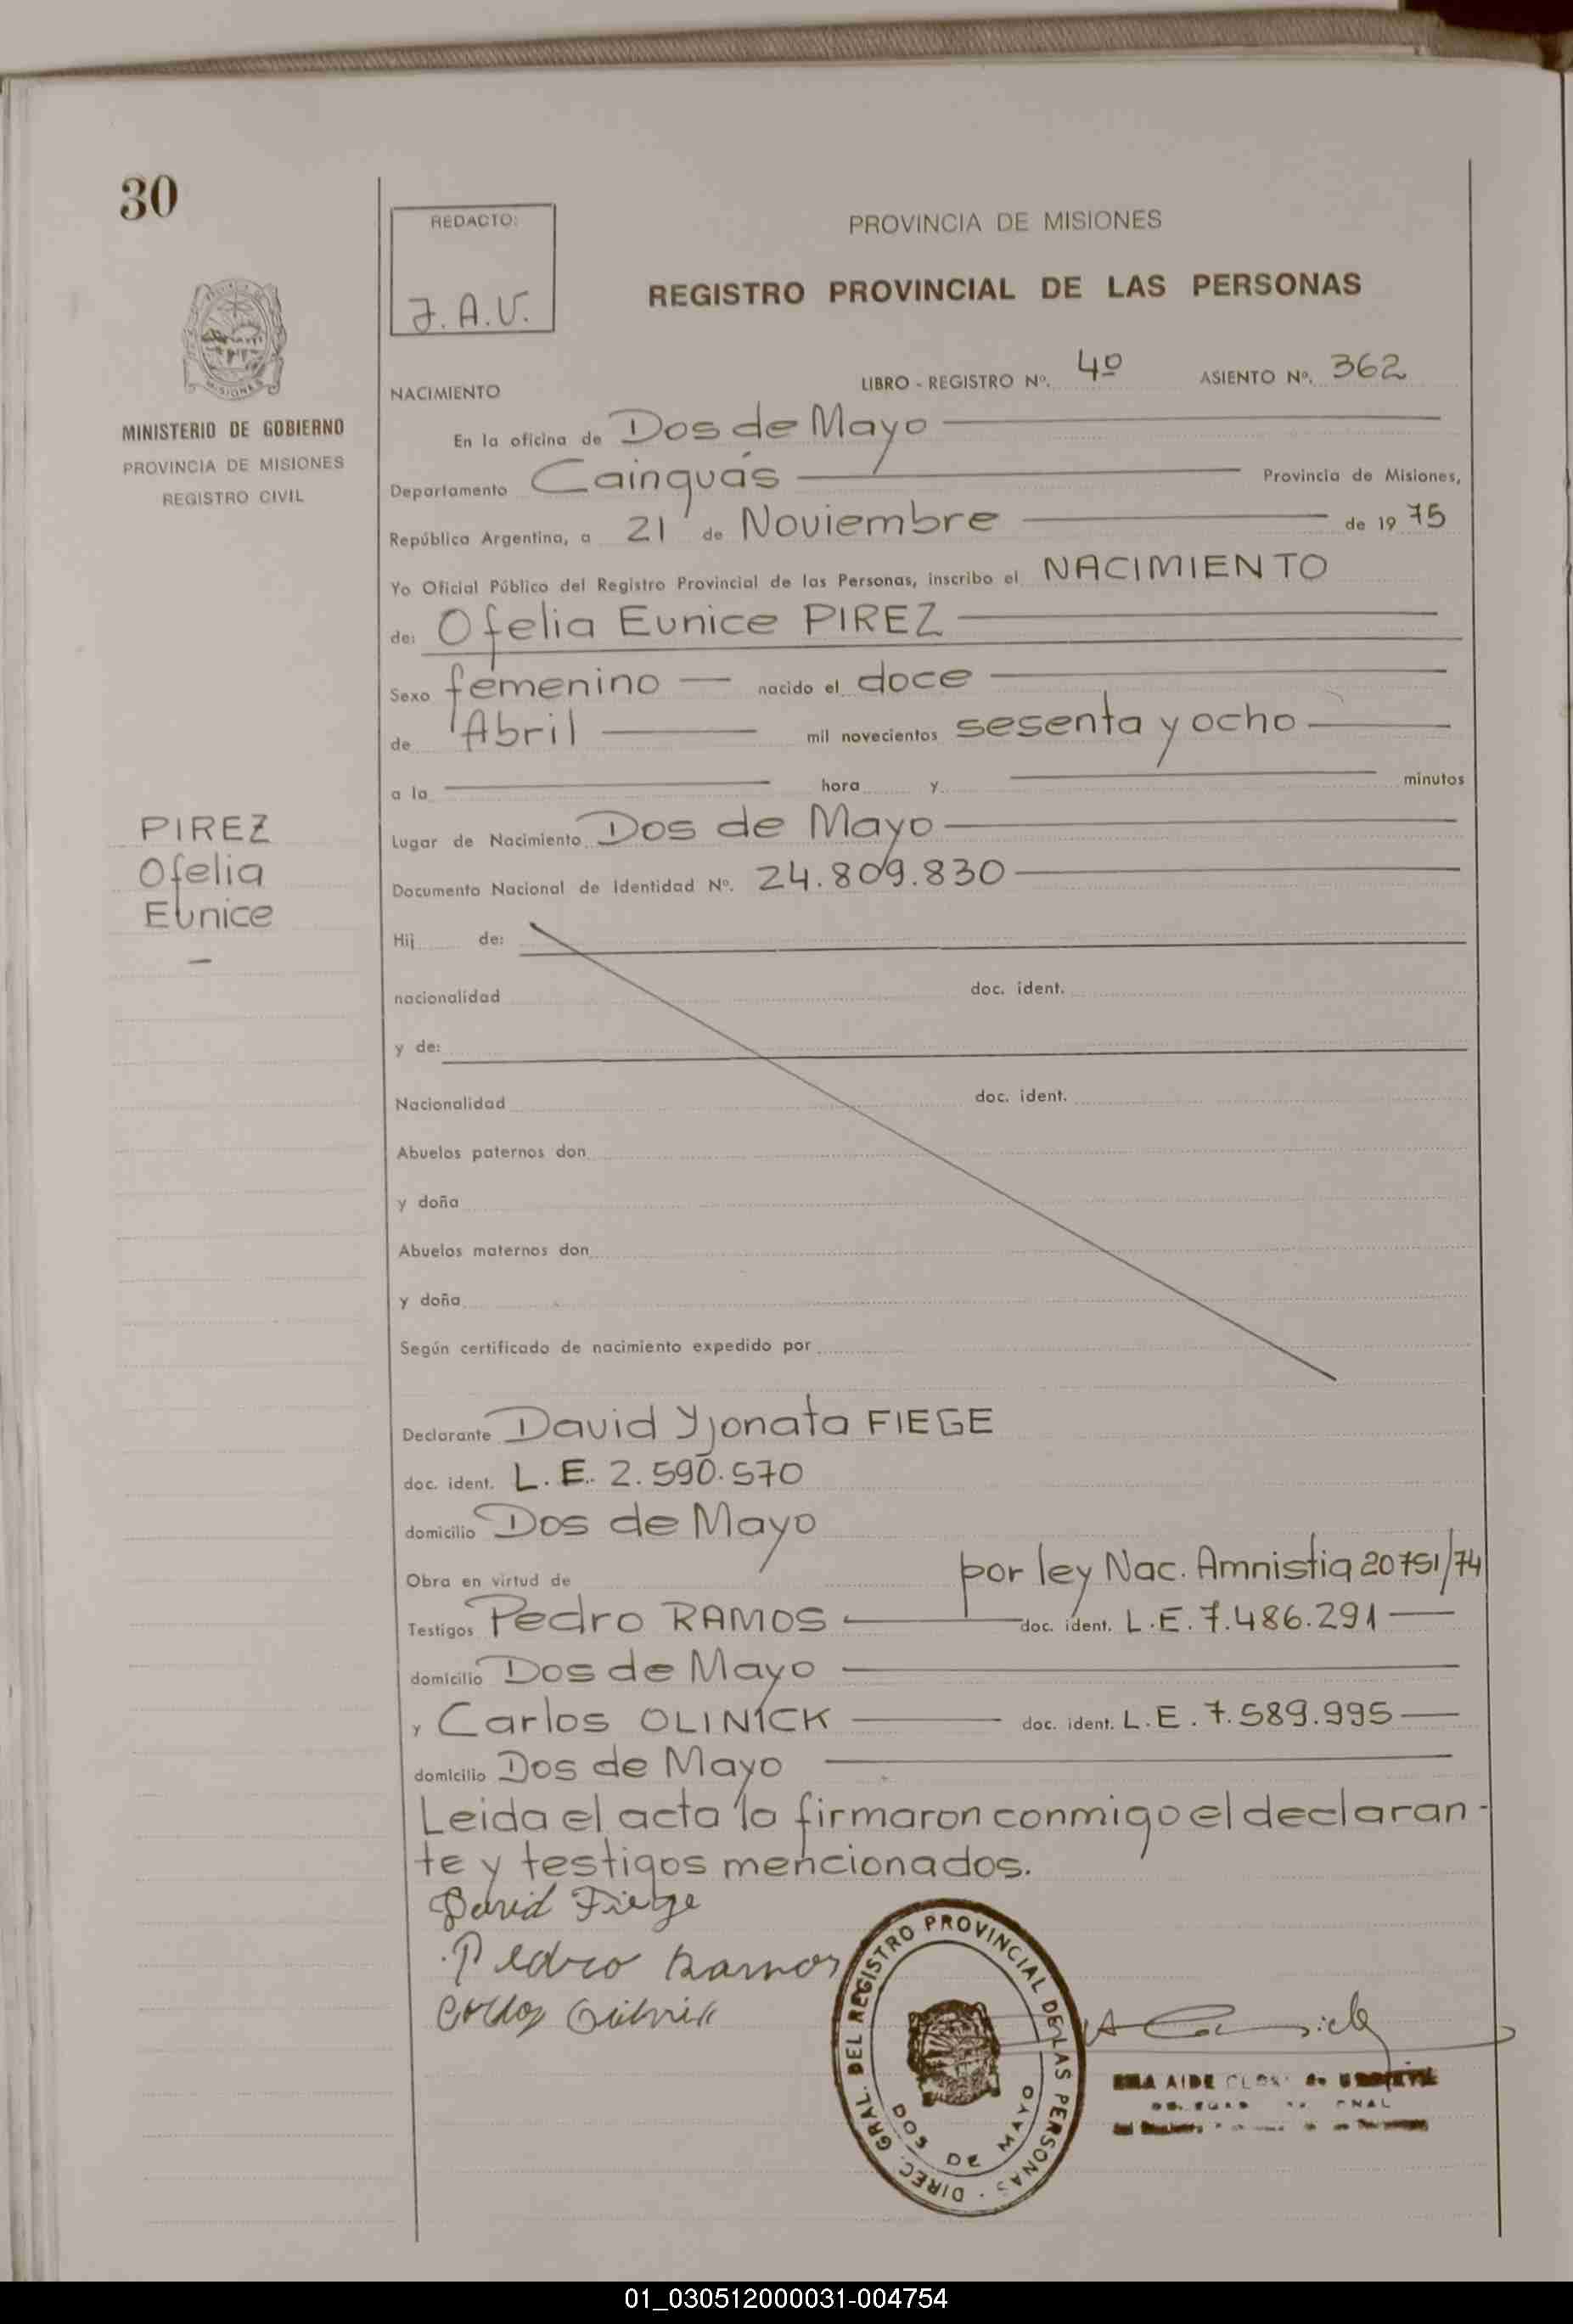 30
REDACTO:
J.A.V.
PROVINCIA DE MISIONES
REGISTRO PROVINCIAL DE LAS PERSONAS
MISIONES
MINISTERIO DE GOBIERNO
PROVINCIA DE MISIONES
REGISTRO CIVIL
NACIMIENTO LIBRO - REGISTRO Nº. 4º ASIENTO Nº. 362
En la oficina de Dos de Mayo
Departamento Cainguás Provincia de Misiones,
República Argentina, a 21 de Noviembre de 19 75
Yo Oficial Público del Registro Provincial de las Personas, inscribo el NACIMIENTO
de: Ofelia Eunice PIREZ
Sexo femenino nacido el doce
de Abril mil novecientos sesenta y ocho
a la hora y minutos
Lugar de Nacimiento Dos de Mayo
Documento Nacional de Identidad Nº. 24.809.830
PIREZ
Ofelia
Eunice
Hij de:
nacionalidad doc. ident.
y de:
Nacionalidad doc. ident.
Abuelos paternos don
y doña
Abuelos maternos don
y doña
Según certificado de nacimiento expedido por
Declarante David Yjonata FIEGE
doc. ident. L.E. 2.590.570
domicilio Dos de Mayo
Obra en virtud de por ley Nac. Amnistia 20751/74
Testigos Pedro RAMOS doc. ident. L.E. 7.486.291
domicilio Dos de Mayo
y Carlos OLINICK doc. ident. L.E. 7.589.995
domicilio Dos de Mayo
Leida el acta la firmaron conmigo el declaran-
te y testigos mencionados.
David Fiege
Pedro Ramos
DIREC. GRAL. DEL REGISTRO PROVINCIAL DE LAS PERSONAS
DOS DE MAYO
AIDE
01_030512000031-004754